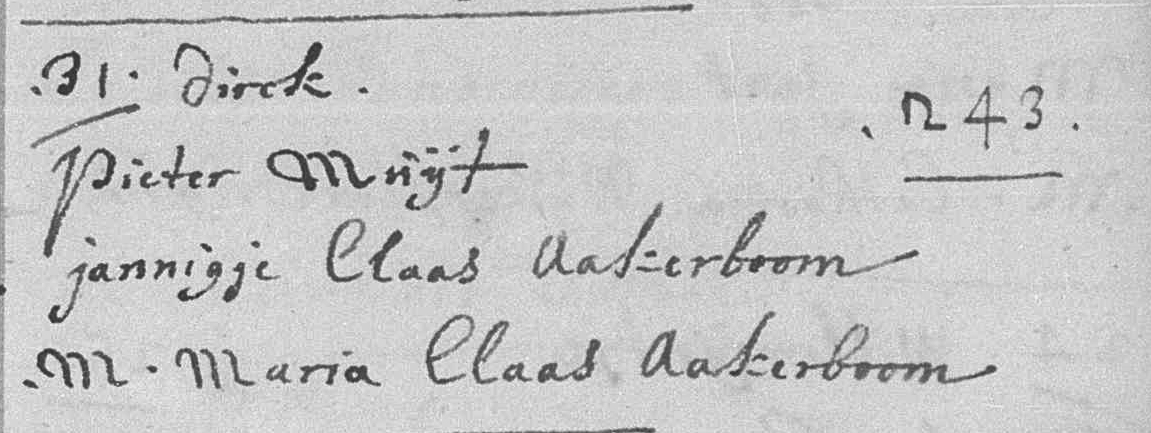 .31. Dirck.
. n 43.
Pieter Muijt
jannigje Claas Aakerboom
.M. Maria Claas Aakerboom